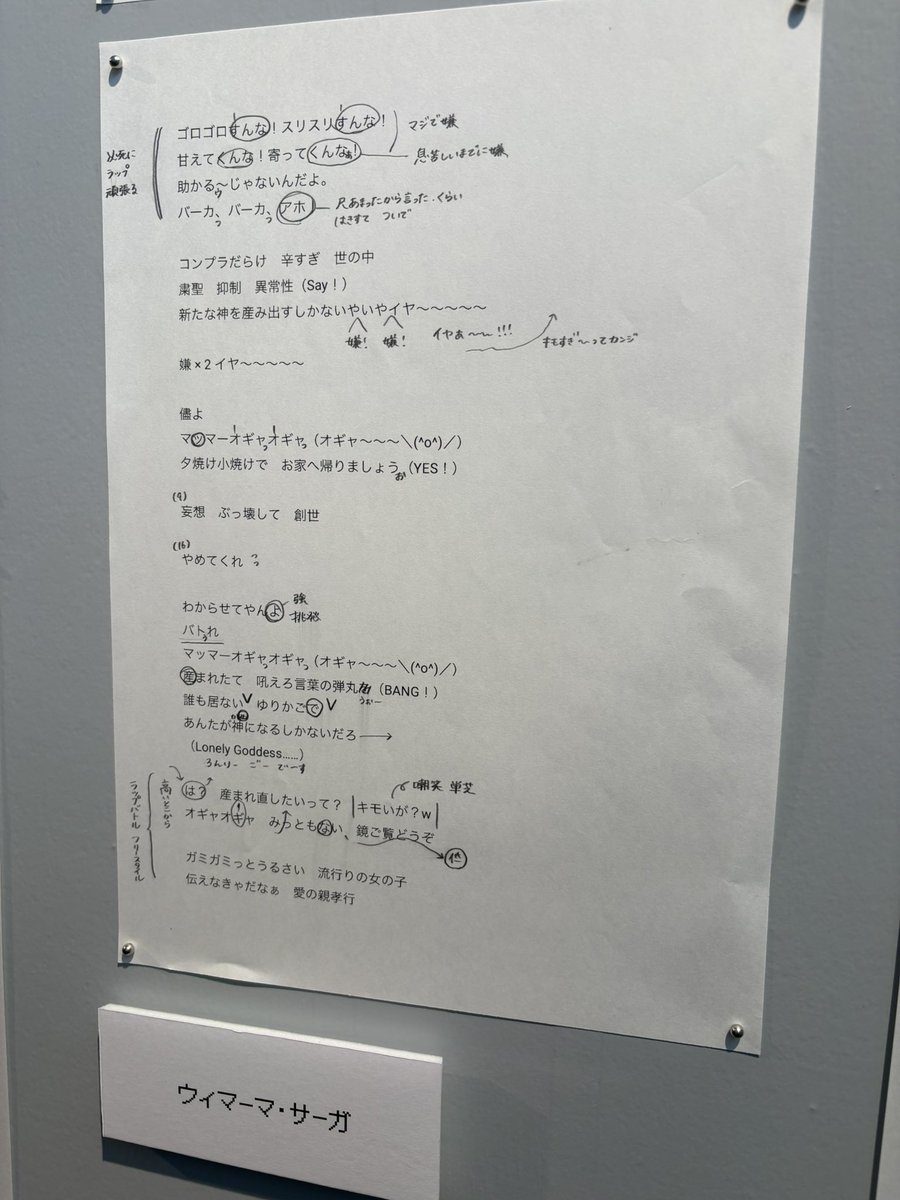 必死に
ラップ
頑張る
ゴロゴロすんな！スリスリすんな！
マジで嫌
甘えてくんな！寄ってくんなぁ！
息苦しいまでに嫌
助かる〜じゃないんだよ。
ウ
バーカ、バーカ、アホ
っ っ
尺あまったから言った.くらい
はきすて ついで
コンプラだらけ 辛すぎ 世の中
粛聖 抑制 異常性（Say！）
新たな神を産み出すしかないやいやイヤ〜〜〜〜〜
嫌! 嫌!
イヤぁ〜〜!!!
キモすぎ〜ってカンジ
嫌×2 イヤ〜〜〜〜〜
儘よ
マッマーオギャオギャ（オギャ〜〜〜＼(^o^)／）
っ っ
夕焼け小焼けで お家へ帰りましょう（YES！）
お
(9)
妄想 ぶっ壊して 創世
(16)
やめてくれ
わからせてやんよ
強
挑発
バトれ
マッマーオギャオギャ（オギャ〜〜〜＼(^o^)／）
っ っ
産まれたて 吼えろ言葉の弾丸（BANG！）
うぉー
誰も居ない V ゆりかごで V
あんたが神になるしかないだろ →
（Lonely Goddess……）
ろんりー ごー でーす
ラップバトル フリースタイル
高いとこから
は？ 産まれ直したいって？ キモいが？w
嘲笑 単芝
オギャオギャ みっともない、鏡ご覧どうぞ
低
ガミガミっとうるさい 流行りの女の子
伝えなきゃだなぁ 愛の親孝行
ウィマーマ・サーガ